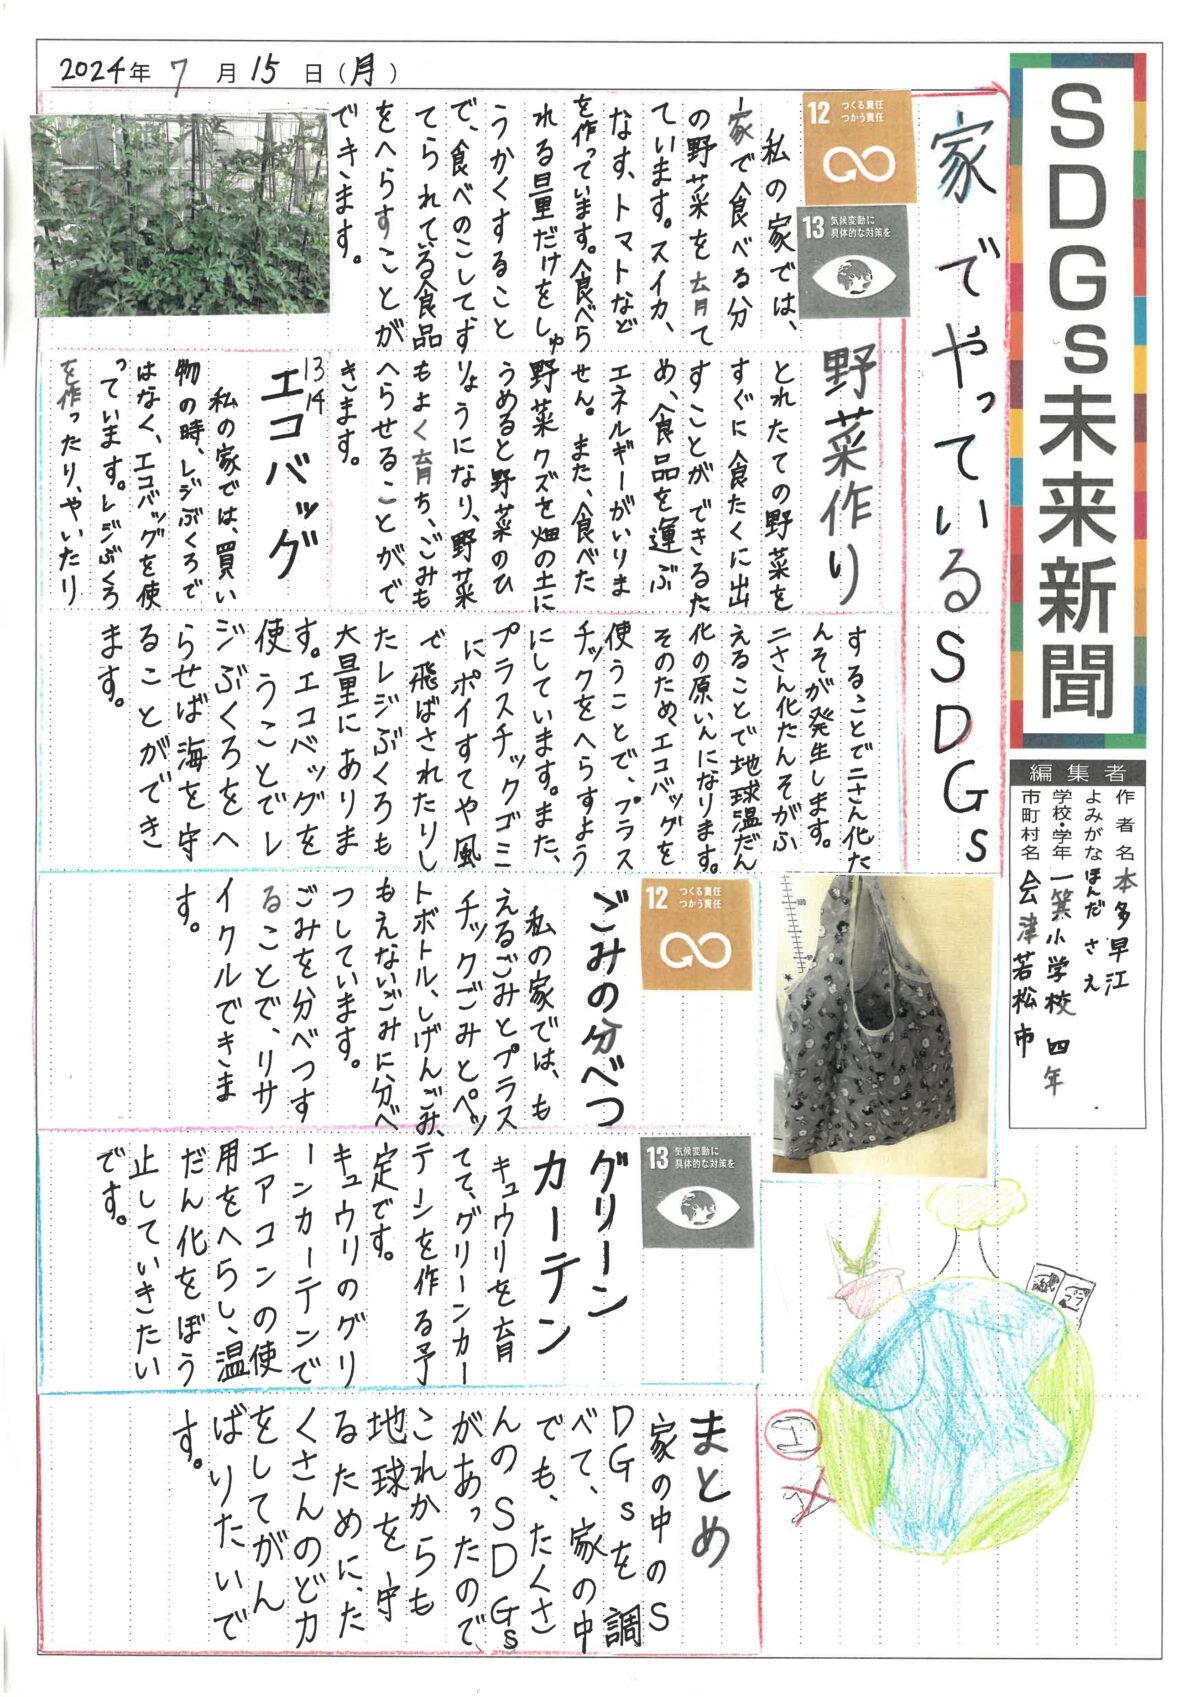 2024年 7月15日(月)
SDGs未来新聞
編集者
作者名 本多早江
よみがな ほんだ さえ
学校・学年 一箕小学校 四年
市町村名 会津若松市
家でやっているSDGs
12 つくる責任
つかう責任
13 気候変動に
具体的な対策を
野菜作り
私の家では、
家で食べる分
の野菜を育て
ています。スイカ、
なす、トマトなど
を作っています。食べら
れる量だけをしゅ
うかくすること
で、食べのこしてす
てられている食品
をへらすことが
できます。
とれたての野菜を
すぐに食たくに出
すことができるた
め、食品を運ぶ
エネルギーがいりま
せん。また、食べた
野菜クズを畑の土に
うめると野菜のひ
りょうになり、野菜
もよく育ち、ごみも
へらせることがで
きます。
13
14
エコバッグ
私の家では、買い
物の時、レジぶくろで
はなく、エコバッグを使
っています。レジぶくろ
を作ったり、やいたり
することで二さん化た
んそが発生します。
二さん化たんそがふ
えることで地球温だん
化の原いんになります。
そのため、エコバッグを
使うことで、プラス
チックをへらすよう
にしています。また、
プラスチックゴミ
にポイすてや風
で飛ばされたりし
たレジぶくろも
大量にありま
す。エコバッグを
使うことでレ
ジぶくろをへ
らせば海を守
ることができ
ます。
12 つくる責任
つかう責任
ごみの分べつ
私の家では、も
えるごみとプラス
チックごみとペッ
トボトル、しげんごみ、
もえないごみに分べ
つしています。
ごみを分べつす
ることで、リサ
イクルできま
す。
13 気候変動に
具体的な対策を
グリーン
カーテン
キュウリを育
てて、グリーンカー
テンを作る予
定です。
キュウリのグリ
ーンカーテンで
エアコンの使
用をへらし、温
だん化をぼう
止していきたい
です。
まとめ
家の中のS
DGsを調
べて、家の中
でも、たくさ
んのSDGs
があったので
これからも
地球を守
るために、た
くさんのどカ
をしてがん
ばりたいで
す。